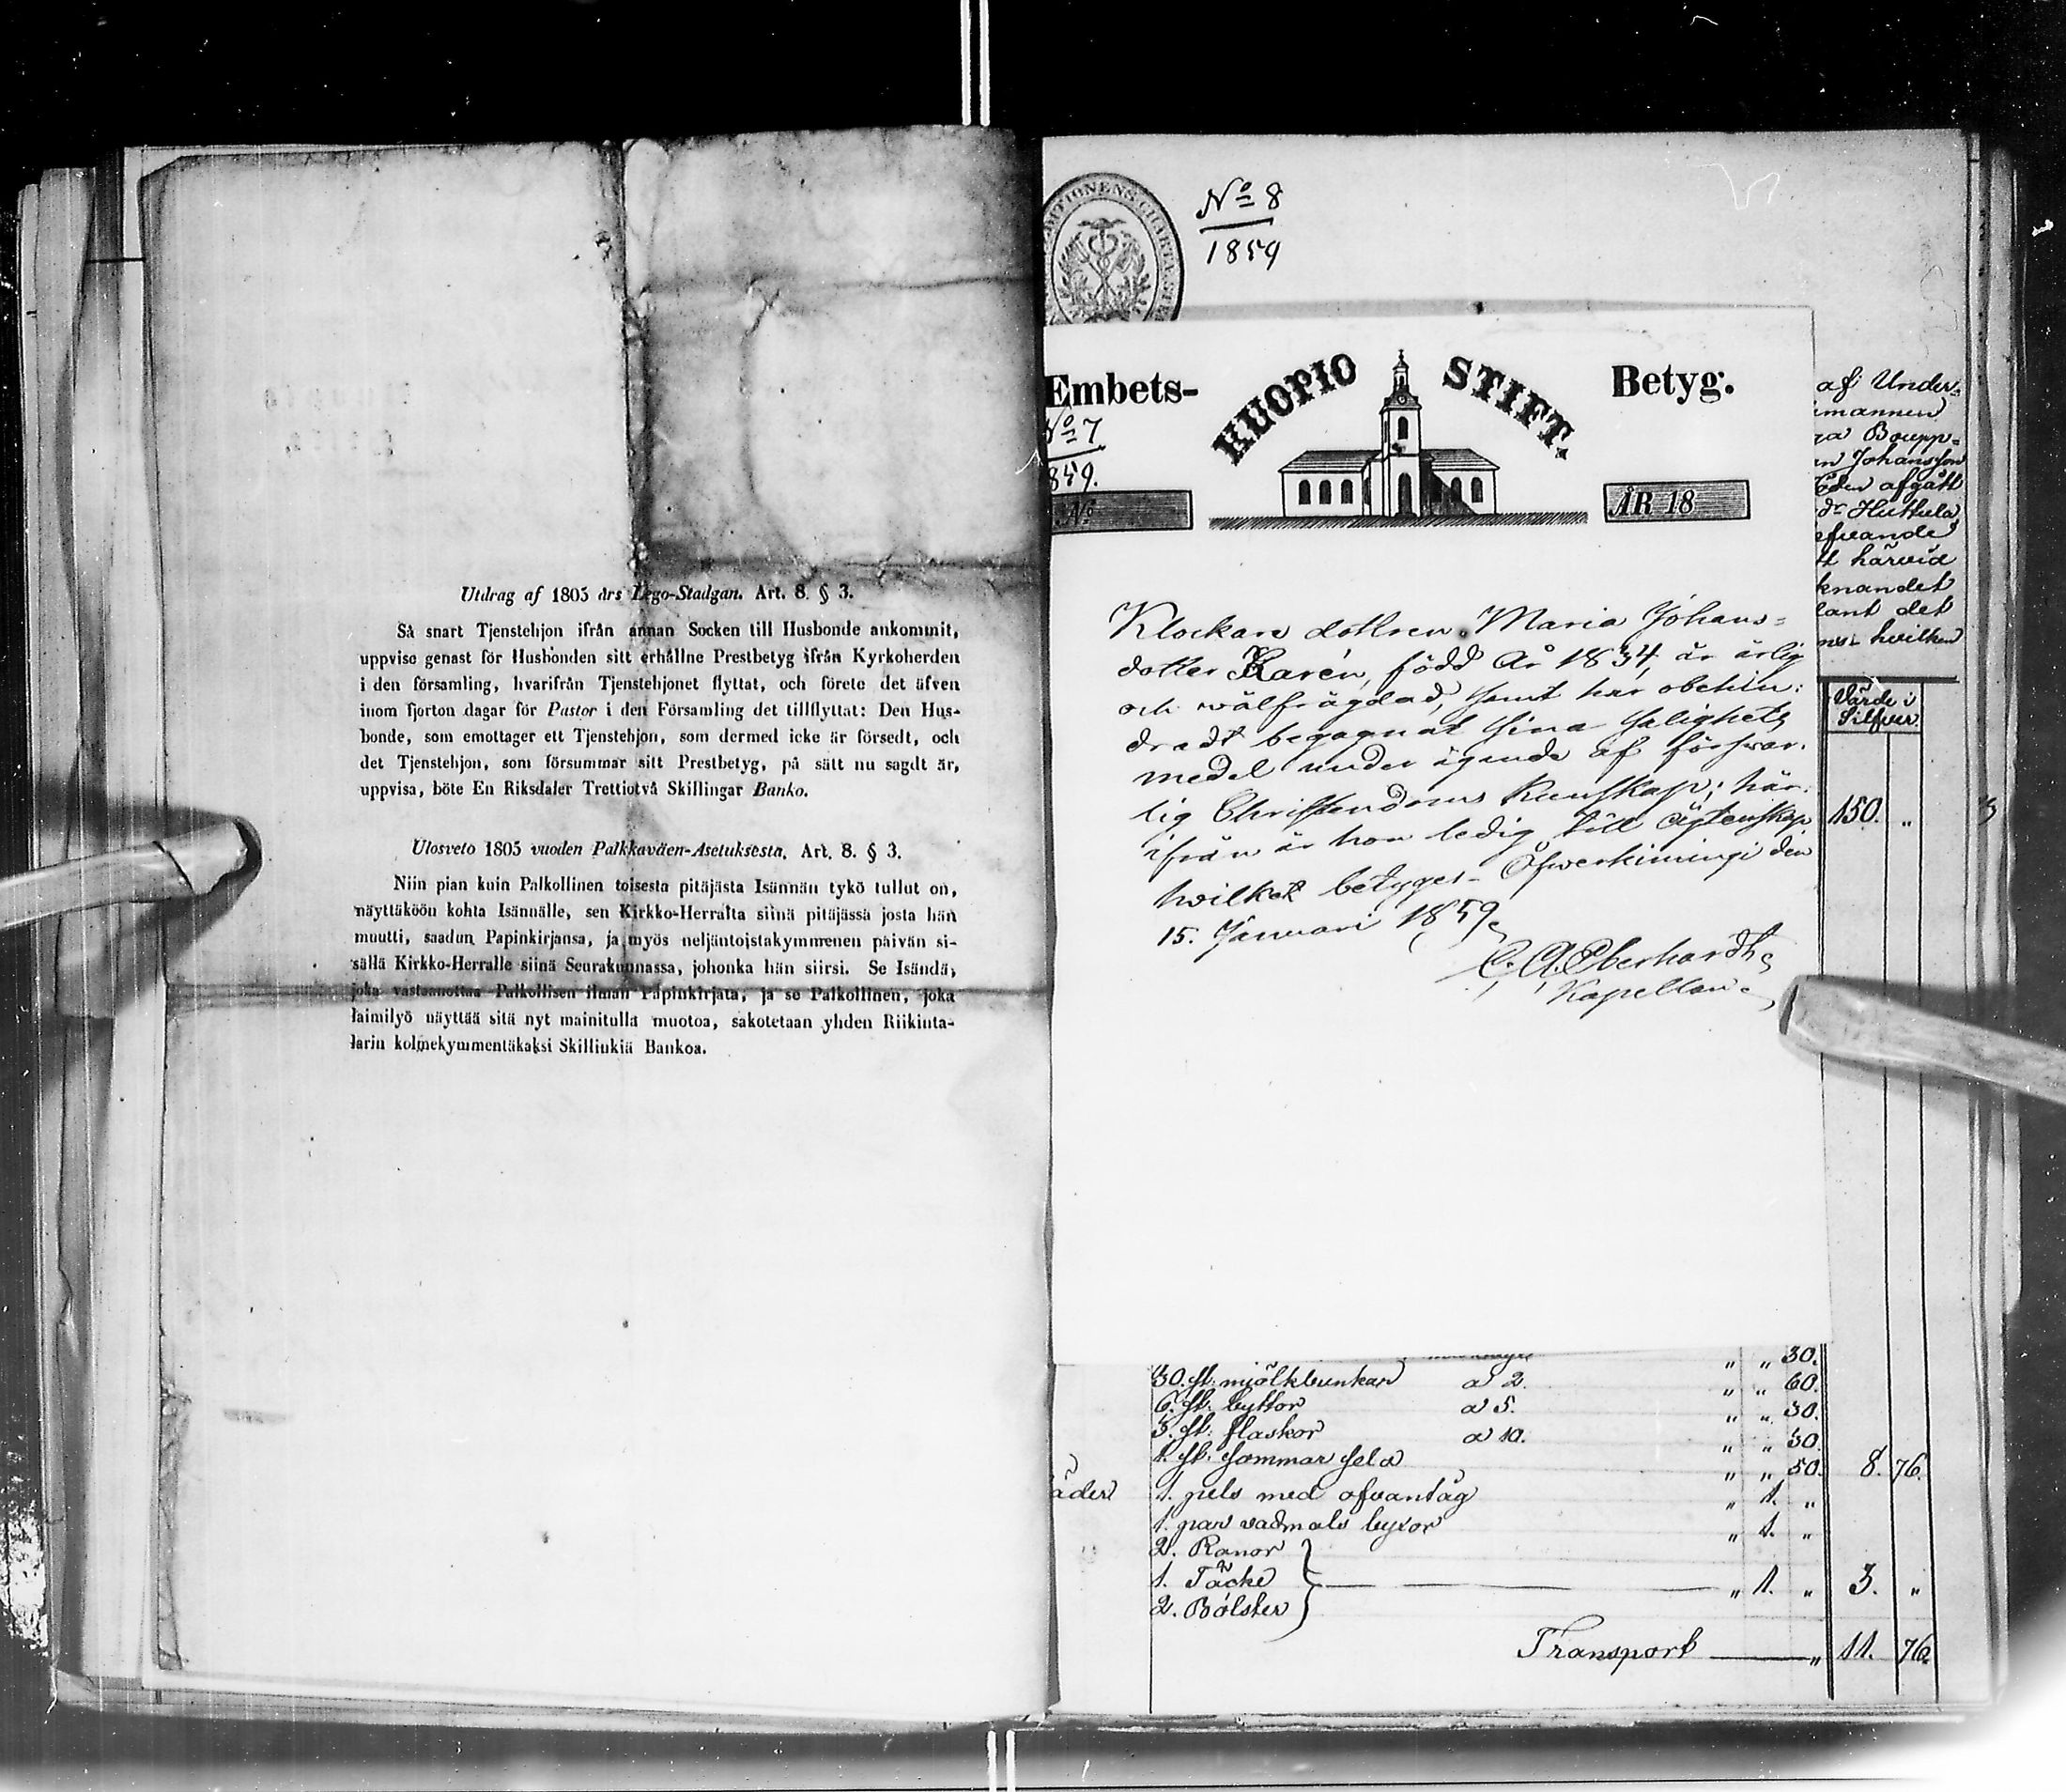 Utdrag af 1805 års Lego-Stadgan. Art. 8. § 3.
Så snart Tjenstehjon ifrån annan Socken till Husbonde ankommit,
uppvise genast för Husbonden sitt erhållne Prestbetyg ifrån Kyrkoherden
i den församling, hvarifrån Tjenstehjonet flyttat, och förete det äfven
inom fjorton dagar för Pastor i den Församling det tillflyttat: Den Hus-
bonde, som emottager ett Tjenstehjon, som dermed icke är försedt, och
det Tjenstehjon, som försummar sitt Prestbetyg, på sätt nu sagdt är,
uppvisa, böte En Riksdaler Trettiotvå Skillingar Banko.
Ulosveto 1805 vuoden Palkkaväen-Asetuksesta. Art. 8. § 3.
Niin pian kuin Palkollinen toisesta pitäjästä Isännän tykö tullut on,
näyttäköön kohta Isännälle, sen Kirkko-Herralta siinä pitäjässä josta hän
muutti, saadun Papinkirjansa, ja myös neljäntoistakymmenen päivän si-
sällä Kirkko-Herralle siinä Seurakunnassa, johonka hän siirsi. Se Isändä,
joka vastaanottaa Palkollisen ilman Papinkirjata, ja se Palkollinen, joka
laimilyö näyttää sitä nyt mainitulla muotoa, sakotetaan yhden Riikinta-
larin kolmekymmentäkaksi Skillinkiä Bankoa.
No 8
1859
Embets- KUOPIO STIFT. Betyg.
No 7
859.
No ÅR 18
Klockare dottren Maria Johans=
dotter Karén, född År 1834, är ärlig
och wälfrägdad, samt har obehin:
dradt begagnat sina salighets
medel under ägande af förswar.
lig Christendoms kunskap; här.
ifrån är hon ledig till ägtenskap
hvilket betyges. Öfwerkimingi den
15. Januari 1859.
C. A. Eberhardh
Kapellan.
af Under=
mannen
ga Boupp=
n Johansson
öden afgått
d: Huttula
efvande
tt härvid
knandet
lant det
ns hvilken
Värde i
Silfver.
150. "
" " 30.
30. st: mjölkbunkar a 2. " " 60.
6. st: byttor a 5. " " 30.
3. st: flaskor a 10. " " 30.
1. st: sommar sela " " 50. 8. 76.
äder 1. pels med ofvantåg " 1. "
1. par vadmals byxor " 1. "
2. Ranor
1. Täcke " 1. " 3. "
2. Bolster
Transport " 11. 76.